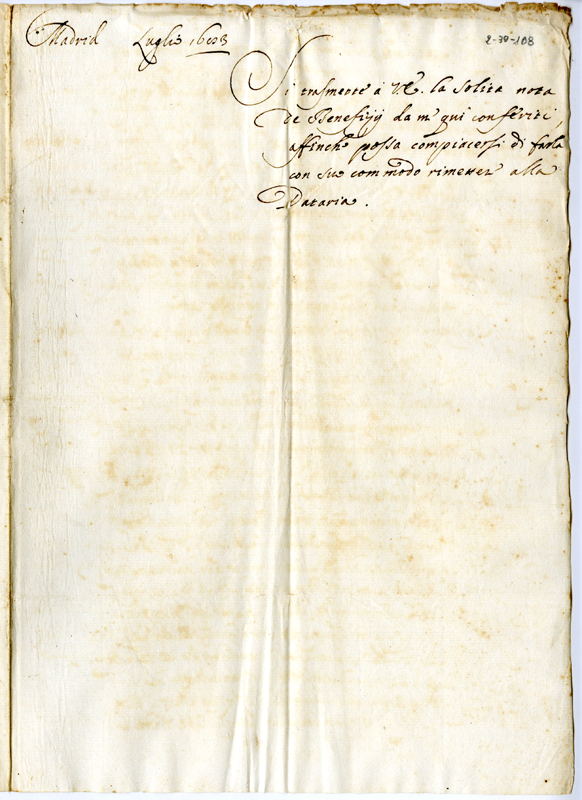 Madrid Luglio 2-30-108
Si trasmette à VE. la solita nota
de Benefizij da me qui conferiti,
affinche possa compiacersi di farla
con suo commodo rimetter alla
Dataria.